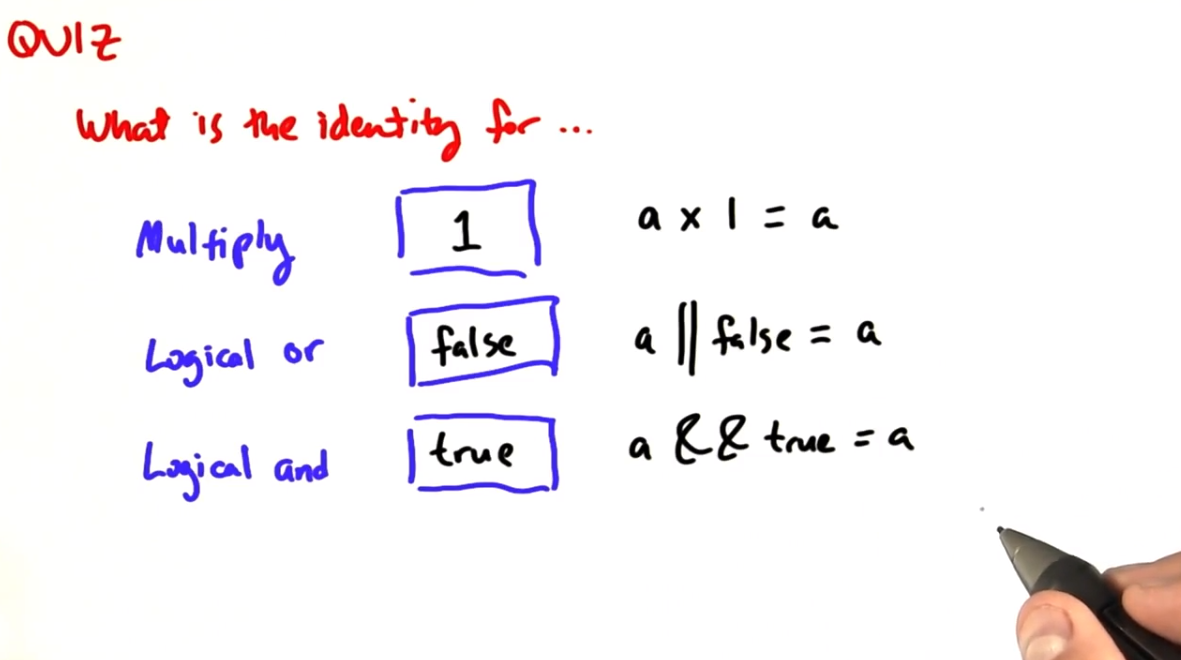 QUIZ
What is the identity for ...
Multiply 1 a x 1 = a
Logical or false a || false = a
Logical and true a && true = a